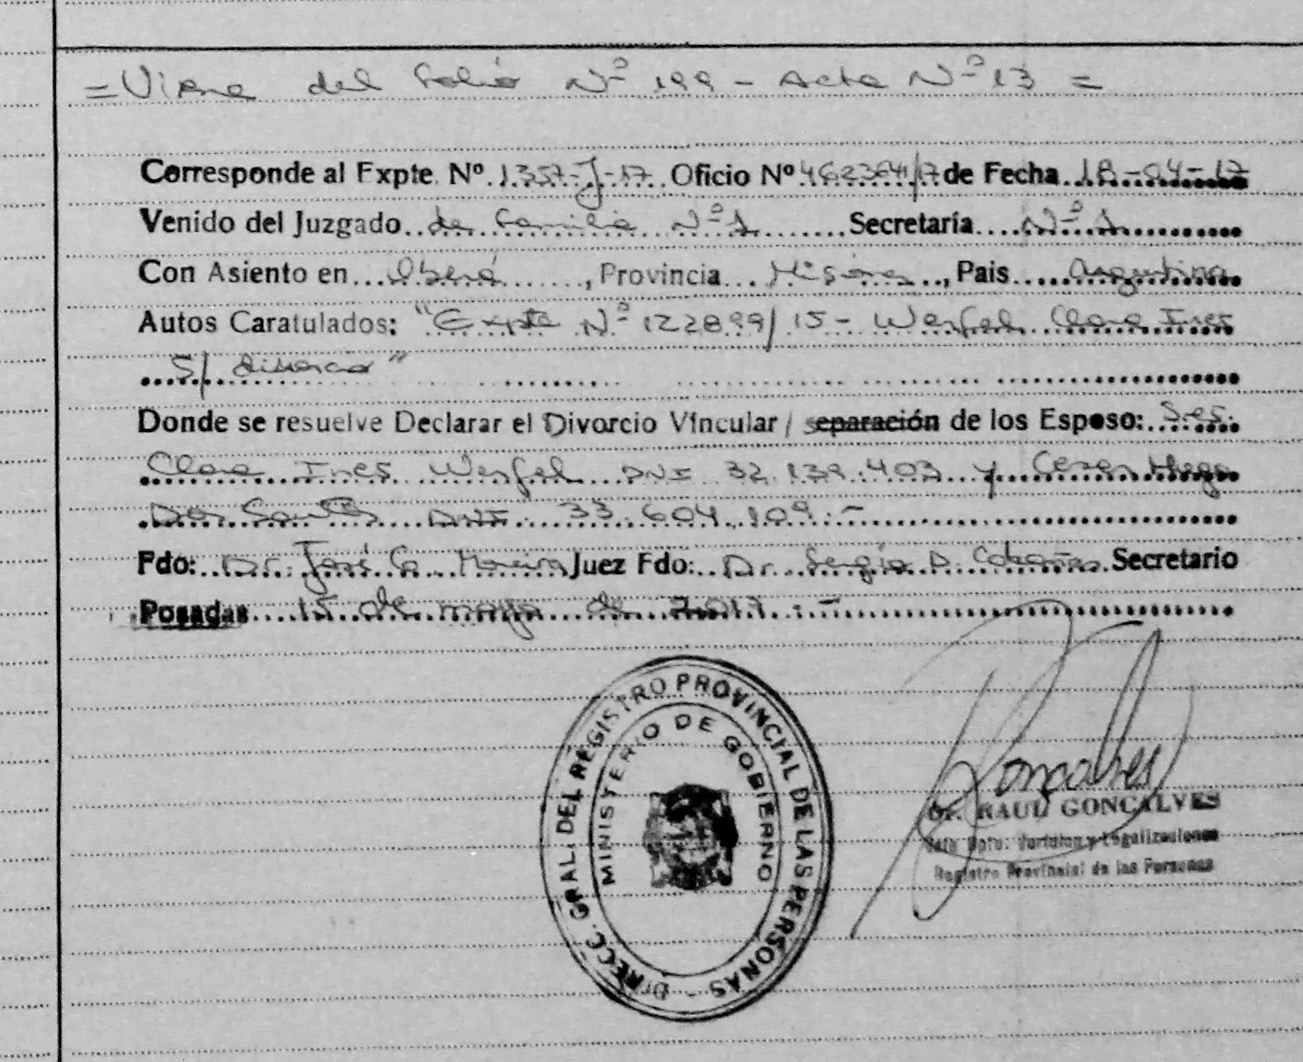 = Viene del folio Nº 199 - Acta Nº 13 =
Corresponde al Expte. Nº 1357-J-17 Oficio Nº 462364/17 de Fecha 18-04-17
Venido del Juzgado de familia Nº 1 Secretaría Nº 1
Con Asiento en Oberá, Provincia Misiones, Pais Argentina
Autos Caratulados: "Expte Nº 122899/15 - Werfel Clara Ines
S/ divorcio"
Donde se resuelve Declarar el Divorcio Vincular / separación de los Esposo: Sres.
Clara Ines Werfel DNI 32.139.403 y Cesar Hugo
Dos Santos DNI 33.604.109.-
Fdo: Dr. José G. Moreira Juez Fdo: Dr. Sergio D. Secretario
Posadas 15 de mayo de 2017.-
DIRECC. GRAL. DEL REGISTRO PROVINCIAL DE LAS PERSONAS -
MINISTERIO DE GOBIERNO
Goncalves
Dr. RAUL GONCALVES
Jefe Dpto. Jurídico y Legalizaciones
Registro Provincial de las Personas